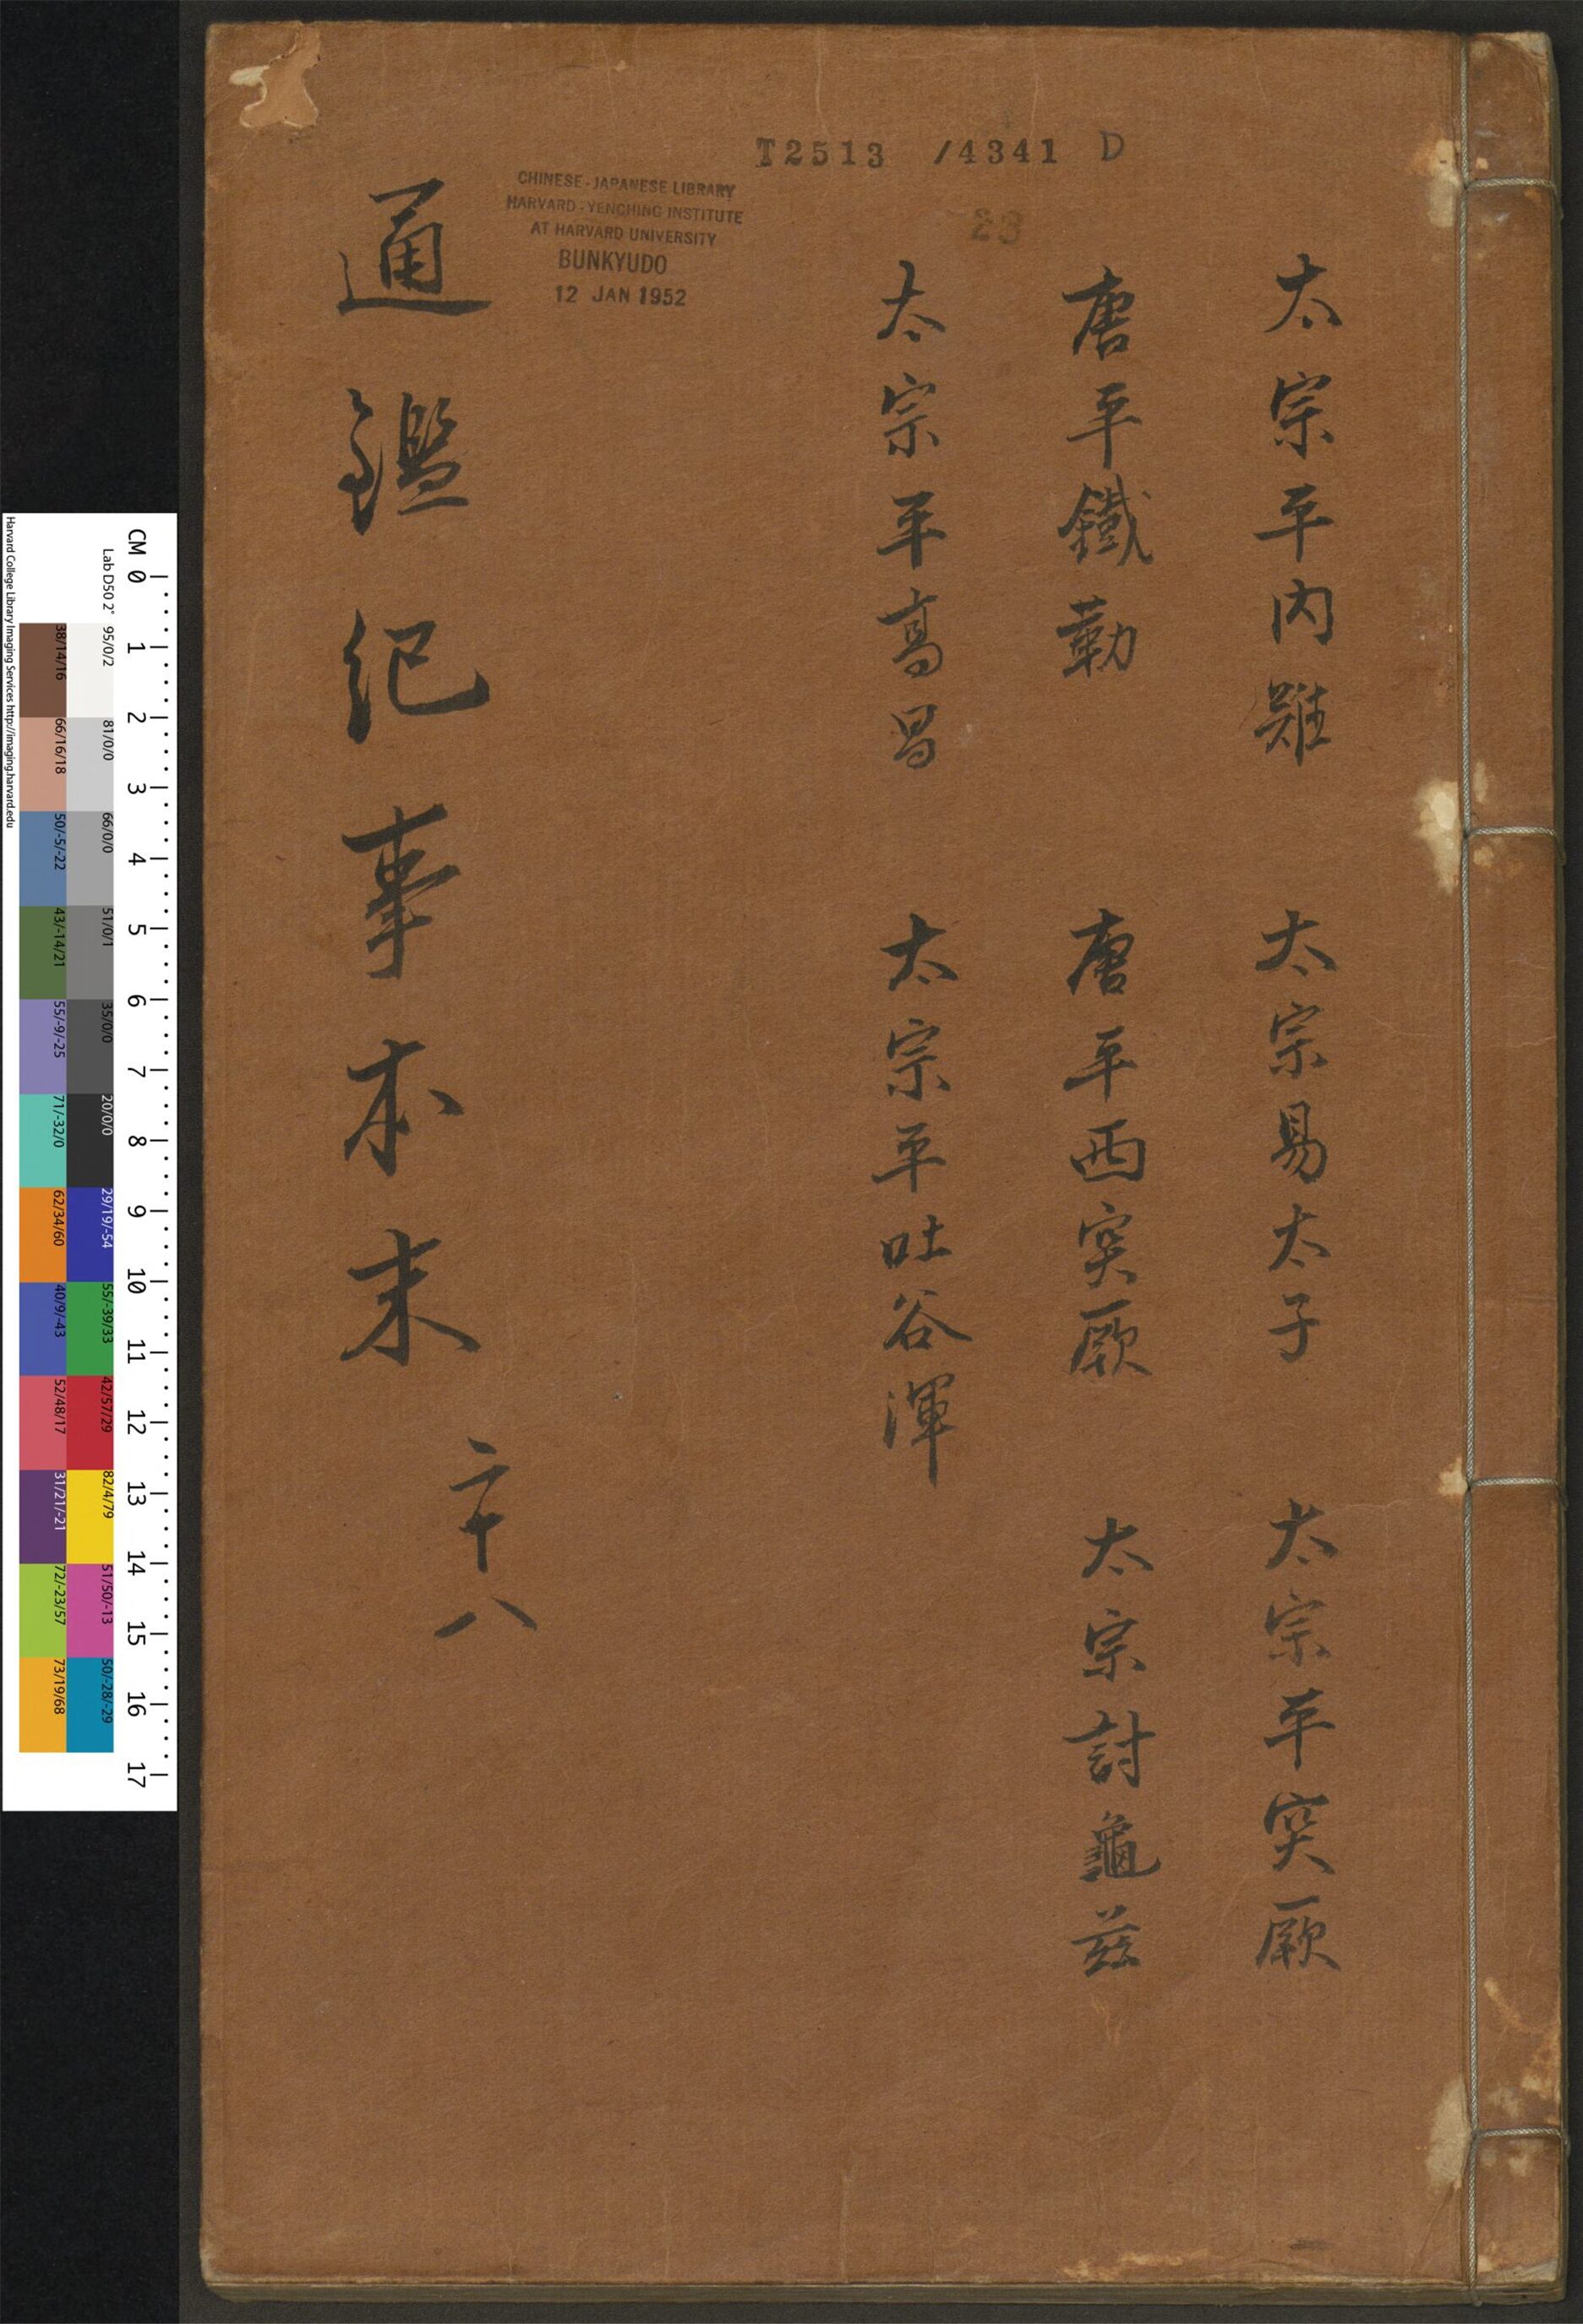 太宗平内難 太宗易太子 太宗平突厥
唐平鐵勒 唐平西突厥 太宗討龜茲
太宗平高昌 太宗平吐谷渾
通鑑紀事本末 二十八
T2513 /4341 D
23
CHINESE-JAPANESE LIBRARY
HARVARD-YENCHING INSTITUTE
AT HARVARD UNIVERSITY
BUNKYUDO
12 JAN 1952
CM 0 1 2 3 4 5 6 7 8 9 10 11 12 13 14 15 16 17
Lab D50 2° 95/0/2 81/0/0 66/0/0 51/0/1 35/0/0 20/0/0 29/19/-54 55/-39/33 42/57/29 82/4/79 51/50/-13 50/-28/-29
38/14/16 66/16/18 50/-5/-22 43/-14/21 55/-9/-25 71/-32/0 62/34/60 40/9/-43 52/48/17 31/21/-21 72/-23/57 73/19/68
Harvard College Library Imaging Services http://imaging.harvard.edu